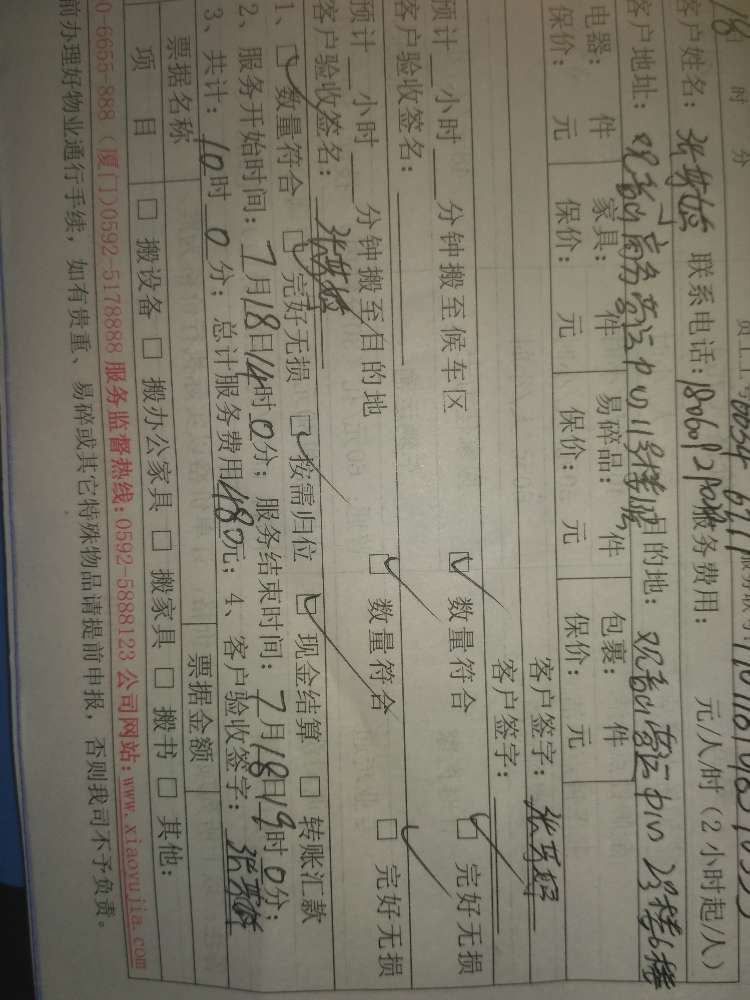 时 分
客户姓名： 联系电话： 服务费用： 元/人/时（2小时起/人）
客户地址：观音山商务营运中心11号楼 目的地：观音山营运中心2号楼6楼
电器： 件 家具： 件 易碎品： 件 包裹： 件
保价： 元 保价： 元 保价： 元 保价： 元
客户签字：
客户签字：
预计__小时__分钟搬至候车区 ☑ 数量符合 ☑ 完好无损
客户验收签名：
预计__小时__分钟搬至目的地 ☑ 数量符合 ☑ 完好无损
客户验收签名：
1、☑ 数量符合 ☑ 完好无损 ☑ 按需归位 ☑ 现金结算 ☐ 转账汇款
2、服务开始时间：7月18日14时0分；服务结束时间：7月18日19时0分；
3、共计：10时0分；总计服务费用480元；4、客户验收签字：
票据名称 票据金额
项 目 ☐ 搬设备 ☐ 搬办公家具 ☐ 搬家具 ☐ 搬书 ☐ 其他：
0-6655-888（厦门）0592-5178888 服务监督热线：0592-5888123 公司网站：www.xiaoyujia.com
前办理好物业通行手续，如有贵重、易碎或其它特殊物品请提前申报，否则我司不予负责。